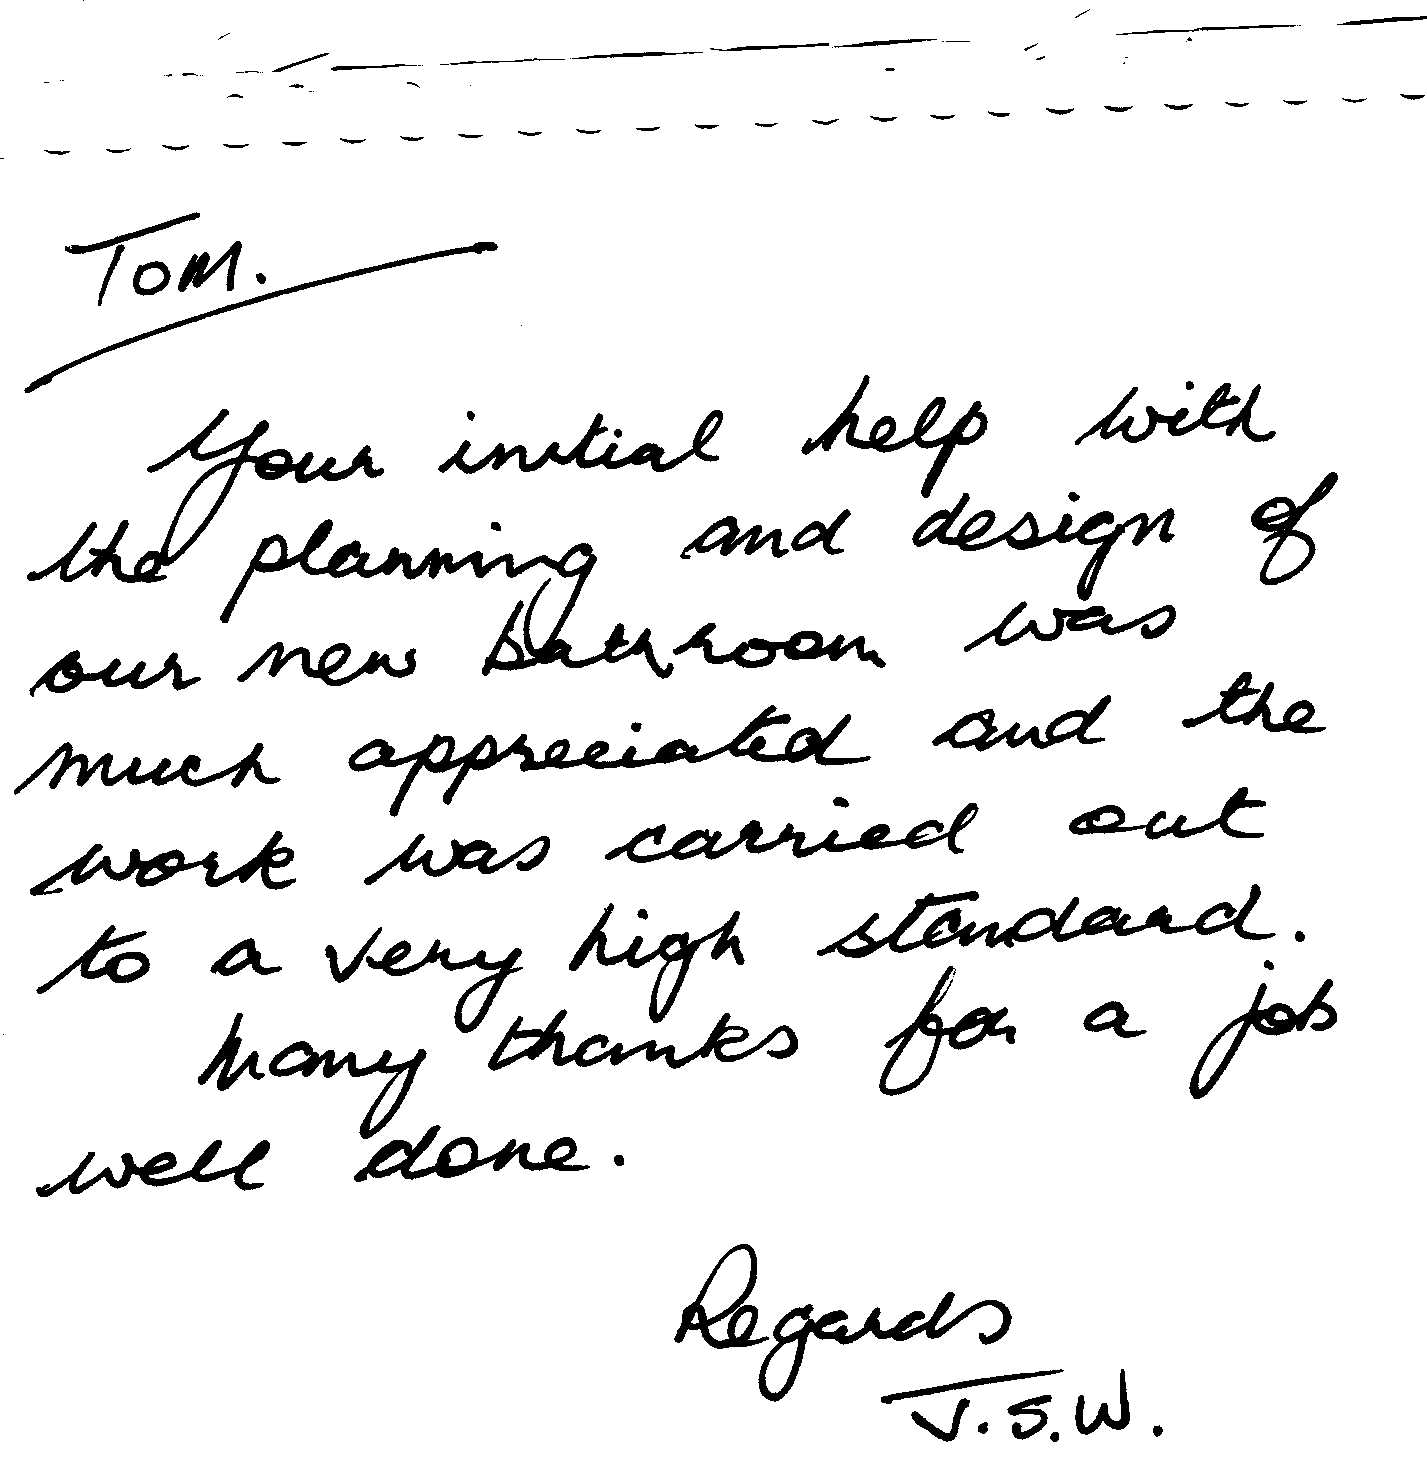 Tom.
Your initial help with
the planning and design of
our new bathroom was
much appreciated and the
work was carried out
to a very high standard.
Many thanks for a job
well done.
Regards
J.S.W.